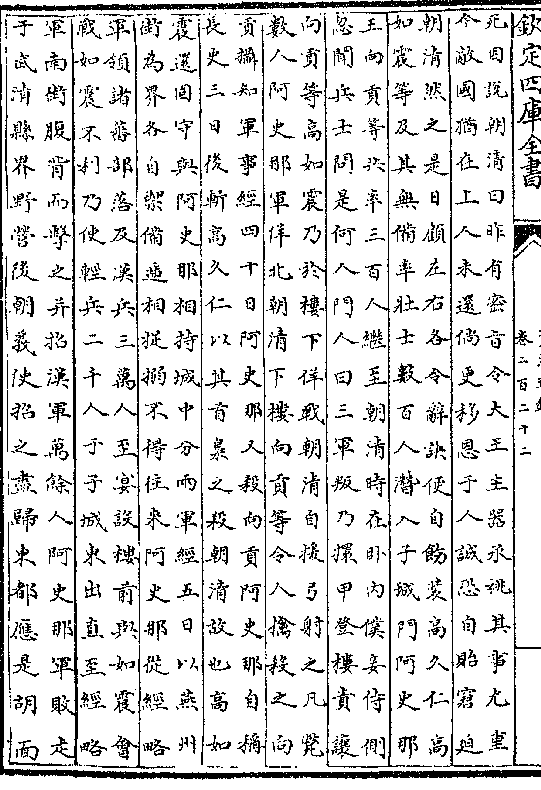 欽定四庫全書
卷二百二十二
死因說朝清曰昨有密旨令大王主器承祧其事尤重
今敵國猶在上人未還倘更移恩于人誠恐自貽窘迫
朝清然之是日顧左右各令辭訣便自飭裝高久仁高
如震等及其無備率壯士數百人潛入子城門阿史那
王向貢等共率三百人繼至朝清時在卧内僕妾侍側
忽聞兵士問是何人門人曰三軍叛乃擐甲登樓責讓
向貢等高如震乃於樓下佯戰朝清自援弓射之凡斃
數人阿史那軍佯北朝清下樓向貢等令人擒殺之向
貢攝知軍事經四十日阿史那又殺向貢阿史那自稱
長史三日後斬高久仁以其首梟之殺朝清故也高如
震還固守與阿史那相持城中分兩軍經五日以燕州
街為界各自禦備遞相捉搦不得往來阿史那從經略
軍領諸蕃部落及漢兵三萬人至宴設樓前與如震會
戰如震不利乃使輕兵二千人于子城東出直至經略
軍南街腹背而擊之并招漢軍萬餘人阿史那軍敗走
于武清縣界野營後朝義使招之盡歸東都應是胡面